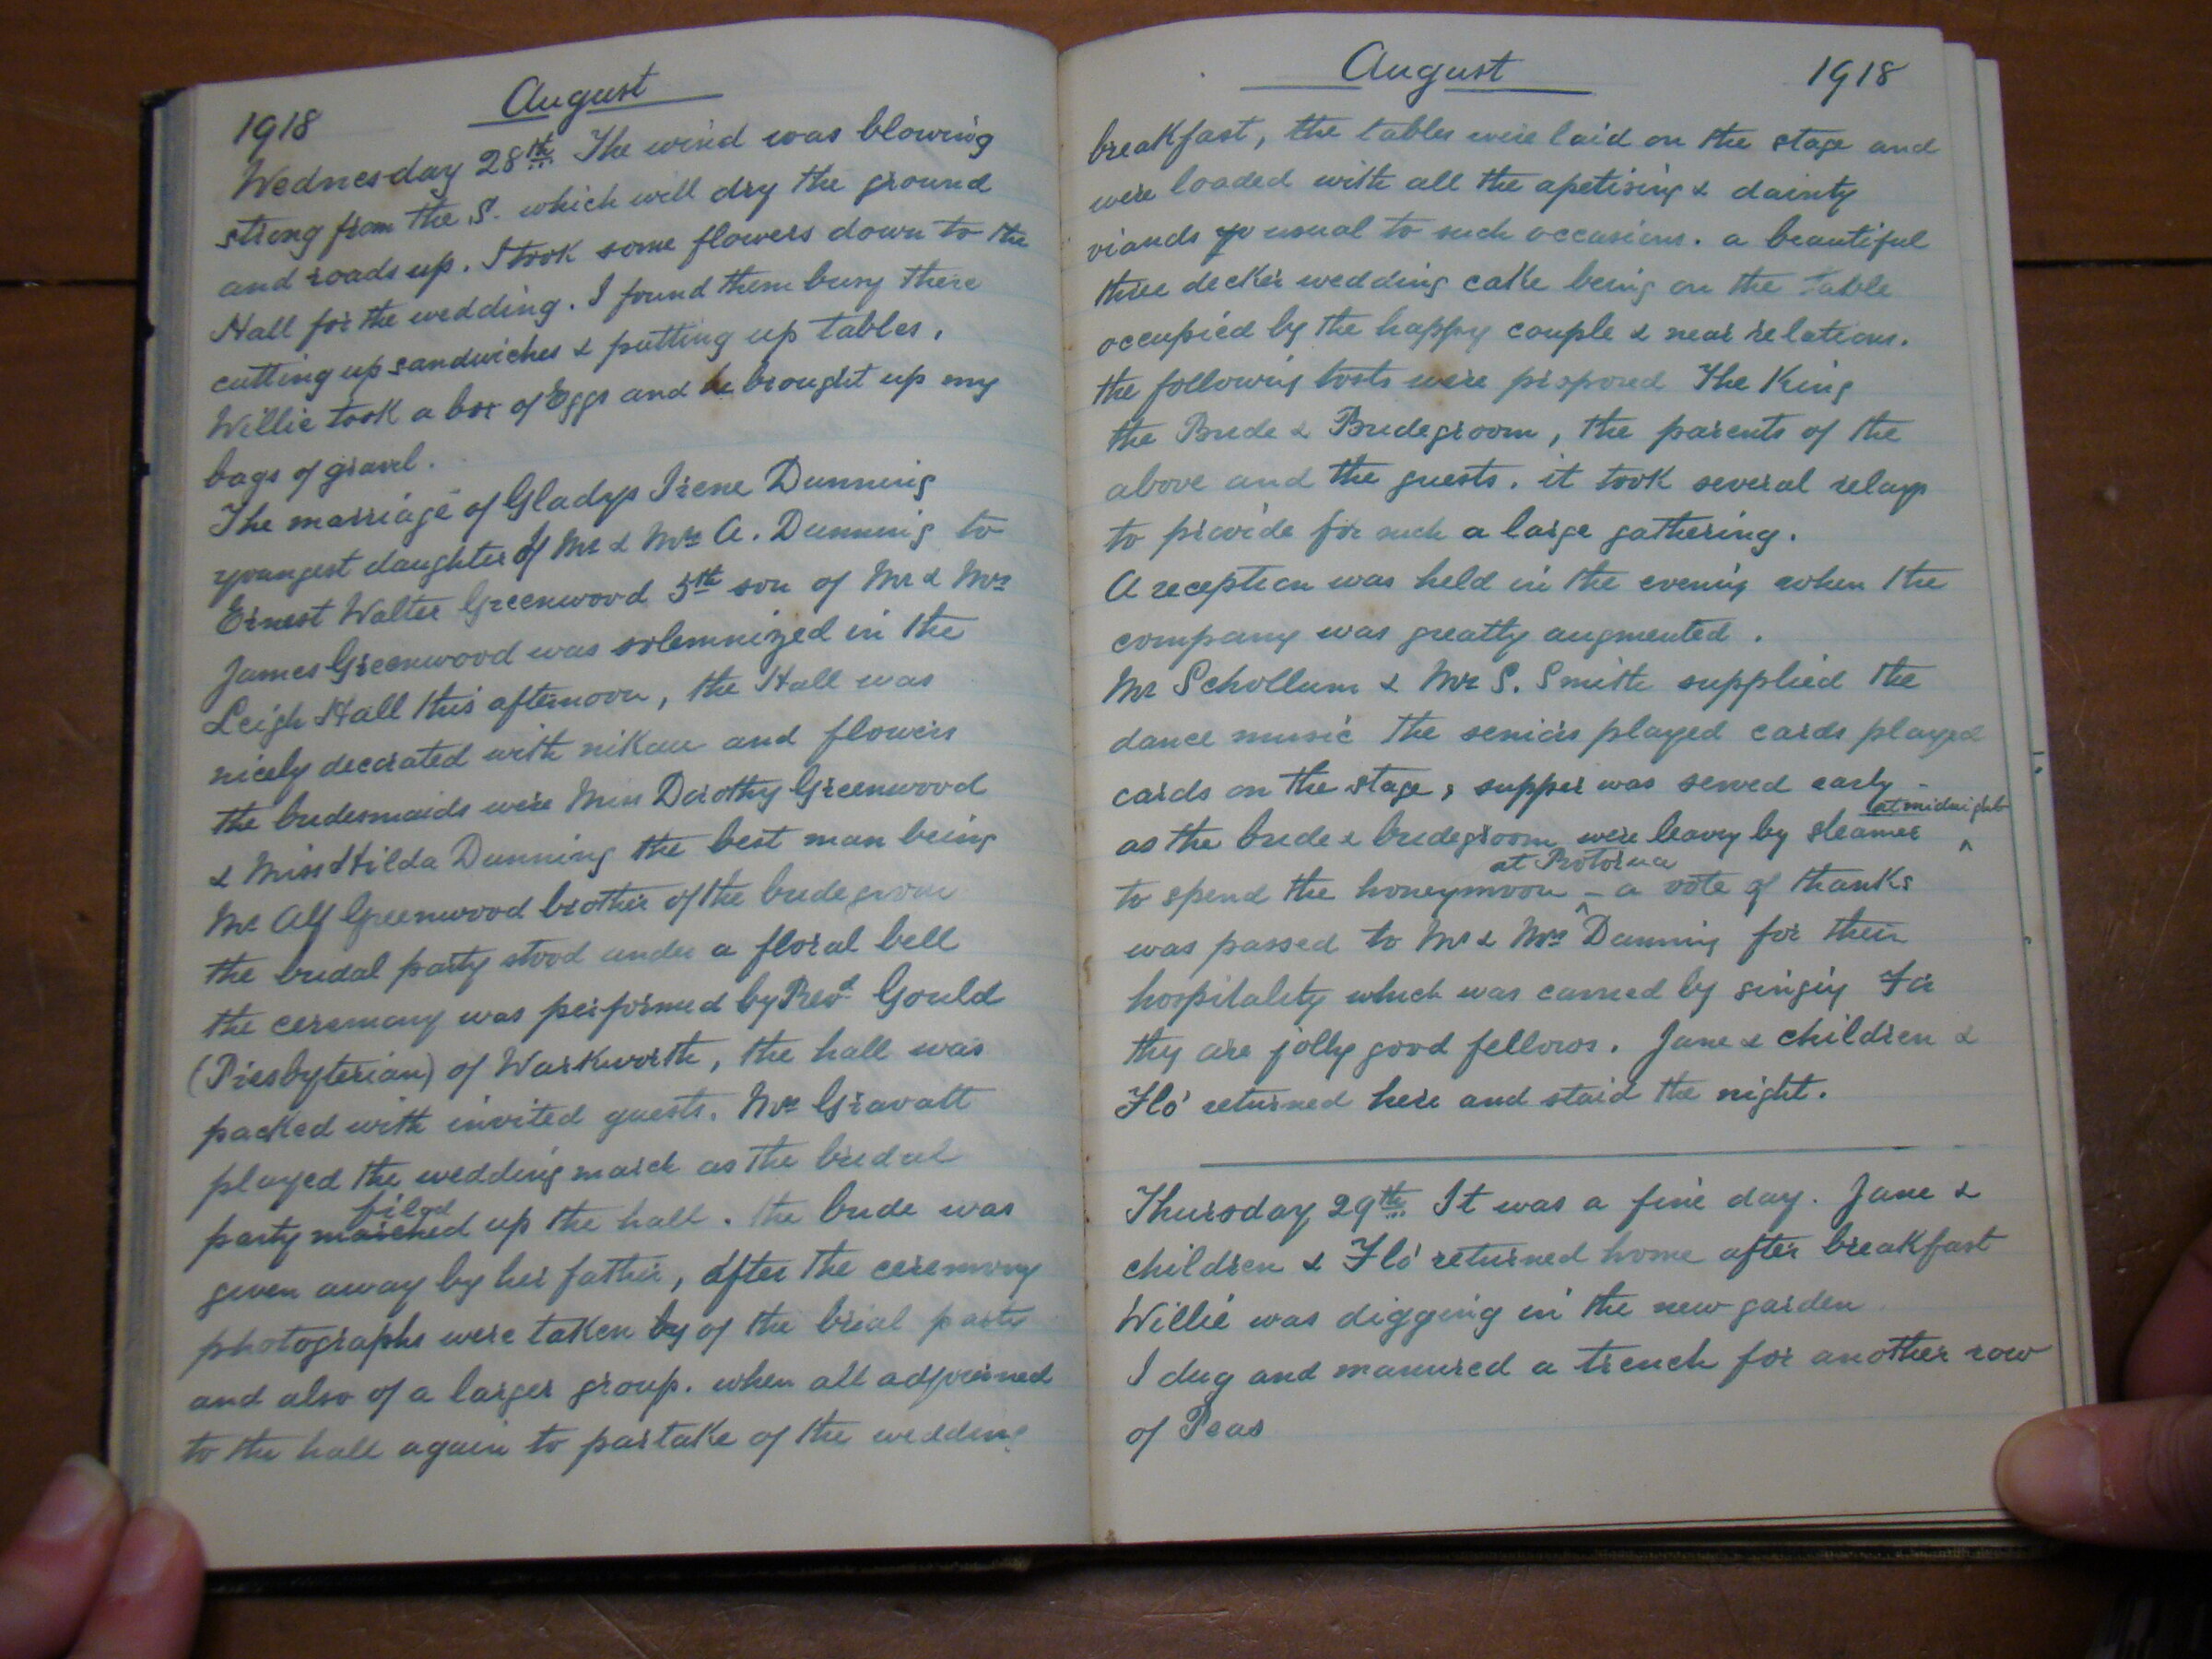 1918 August
Wednesday 28th The wind was blowing
strong from the S. which will dry the ground
and roads up. I took some flowers down to the
Hall for the wedding. I found them busy there
cutting up sandwiches & putting up tables.
Willie took a box of Eggs and brought up my
bags of gravel.
The marriage of Gladys Irene Dunning
youngest daughter of Mr & Mrs A. Dunning to
Ernest Walter Greenwood 5th son of Mr & Mrs
James Greenwood was solemnized in the
Leigh Hall this afternoon, the Hall was
nicely decorated with nikau and flowers
the bridesmaids were Miss Dorothy Greenwood
& Miss Hilda Dunning the best man being
Mr Alf Greenwood brother of the bridegroom
the bridal party stood under a floral bell
the ceremony was performed by Revd Gould
(Presbyterian) of Warkworth, the hall was
packed with invited guests. Mrs Gravatt
played the wedding march as the bridal
filed
party marched up the hall. the bride was
given away by her father, after the ceremony
photographs were taken by of the brial party
and also of a larger group. when all adjourned
to the hall again to partake of the wedding
August 1918
breakfast, the tables were laid on the stage and
were loaded with all the apetising & dainty
viands usual to such occasions. a beautiful
three decker wedding cake being on the table
occupied by the happy couple & near relations.
the following tosts were proposed The King
the Bride & Bridegroom, the parents of the
above and the guests. it took several relays
to provide for such a large gathering.
A reception was held in the evening when the
company was greatly augmented.
Mr Schollum & Mr S. Smith supplied the
dance music the seniors played cards played
cards on the stage, supper was served early
at midnight
as the bride & bridegroom were leavig by steamer ^
at Rotorua
to spend the honeymoon ^ - a vote of thanks
was passed to Mr & Mrs Dunning for their
hospitality which was carried by singing For
they are jolly good fellows. Jane & children &
Flo' returned here and staid the night.
Thursday 29th It was a fine day. Jane &
children & Flo' returned home after breakfast
Willie was digging in the new garden
I dug and manured a trench for another row
of Peas